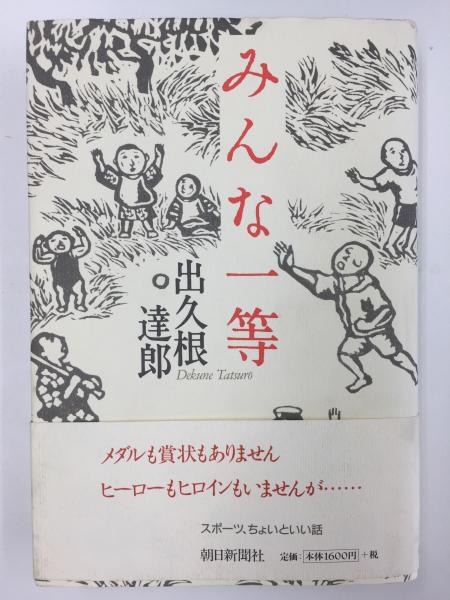 みんな一等
出久根
達郎
Dekune Tatsurō
メダルも賞状もありません
ヒーローもヒロインもいませんが……
スポーツ、ちょいといい話
朝日新聞社 定価:本体1600円+税